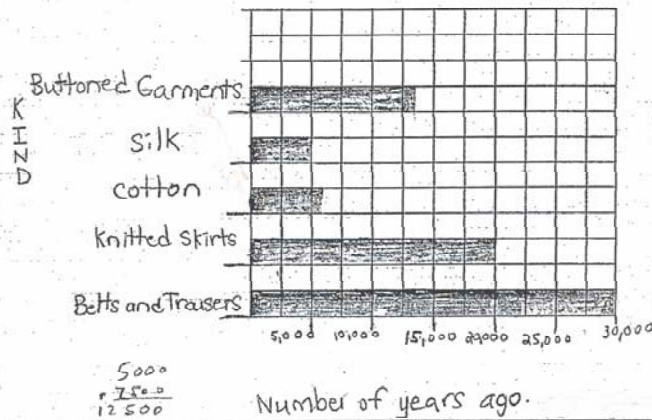 Buttoned Garments
KIND
silk
cotton
Knitted Skirts
Belts and Trousers
5,000 10,000 15,000 20,000 25,000 30,000
5000
+ 7500
12500
Number of years ago.